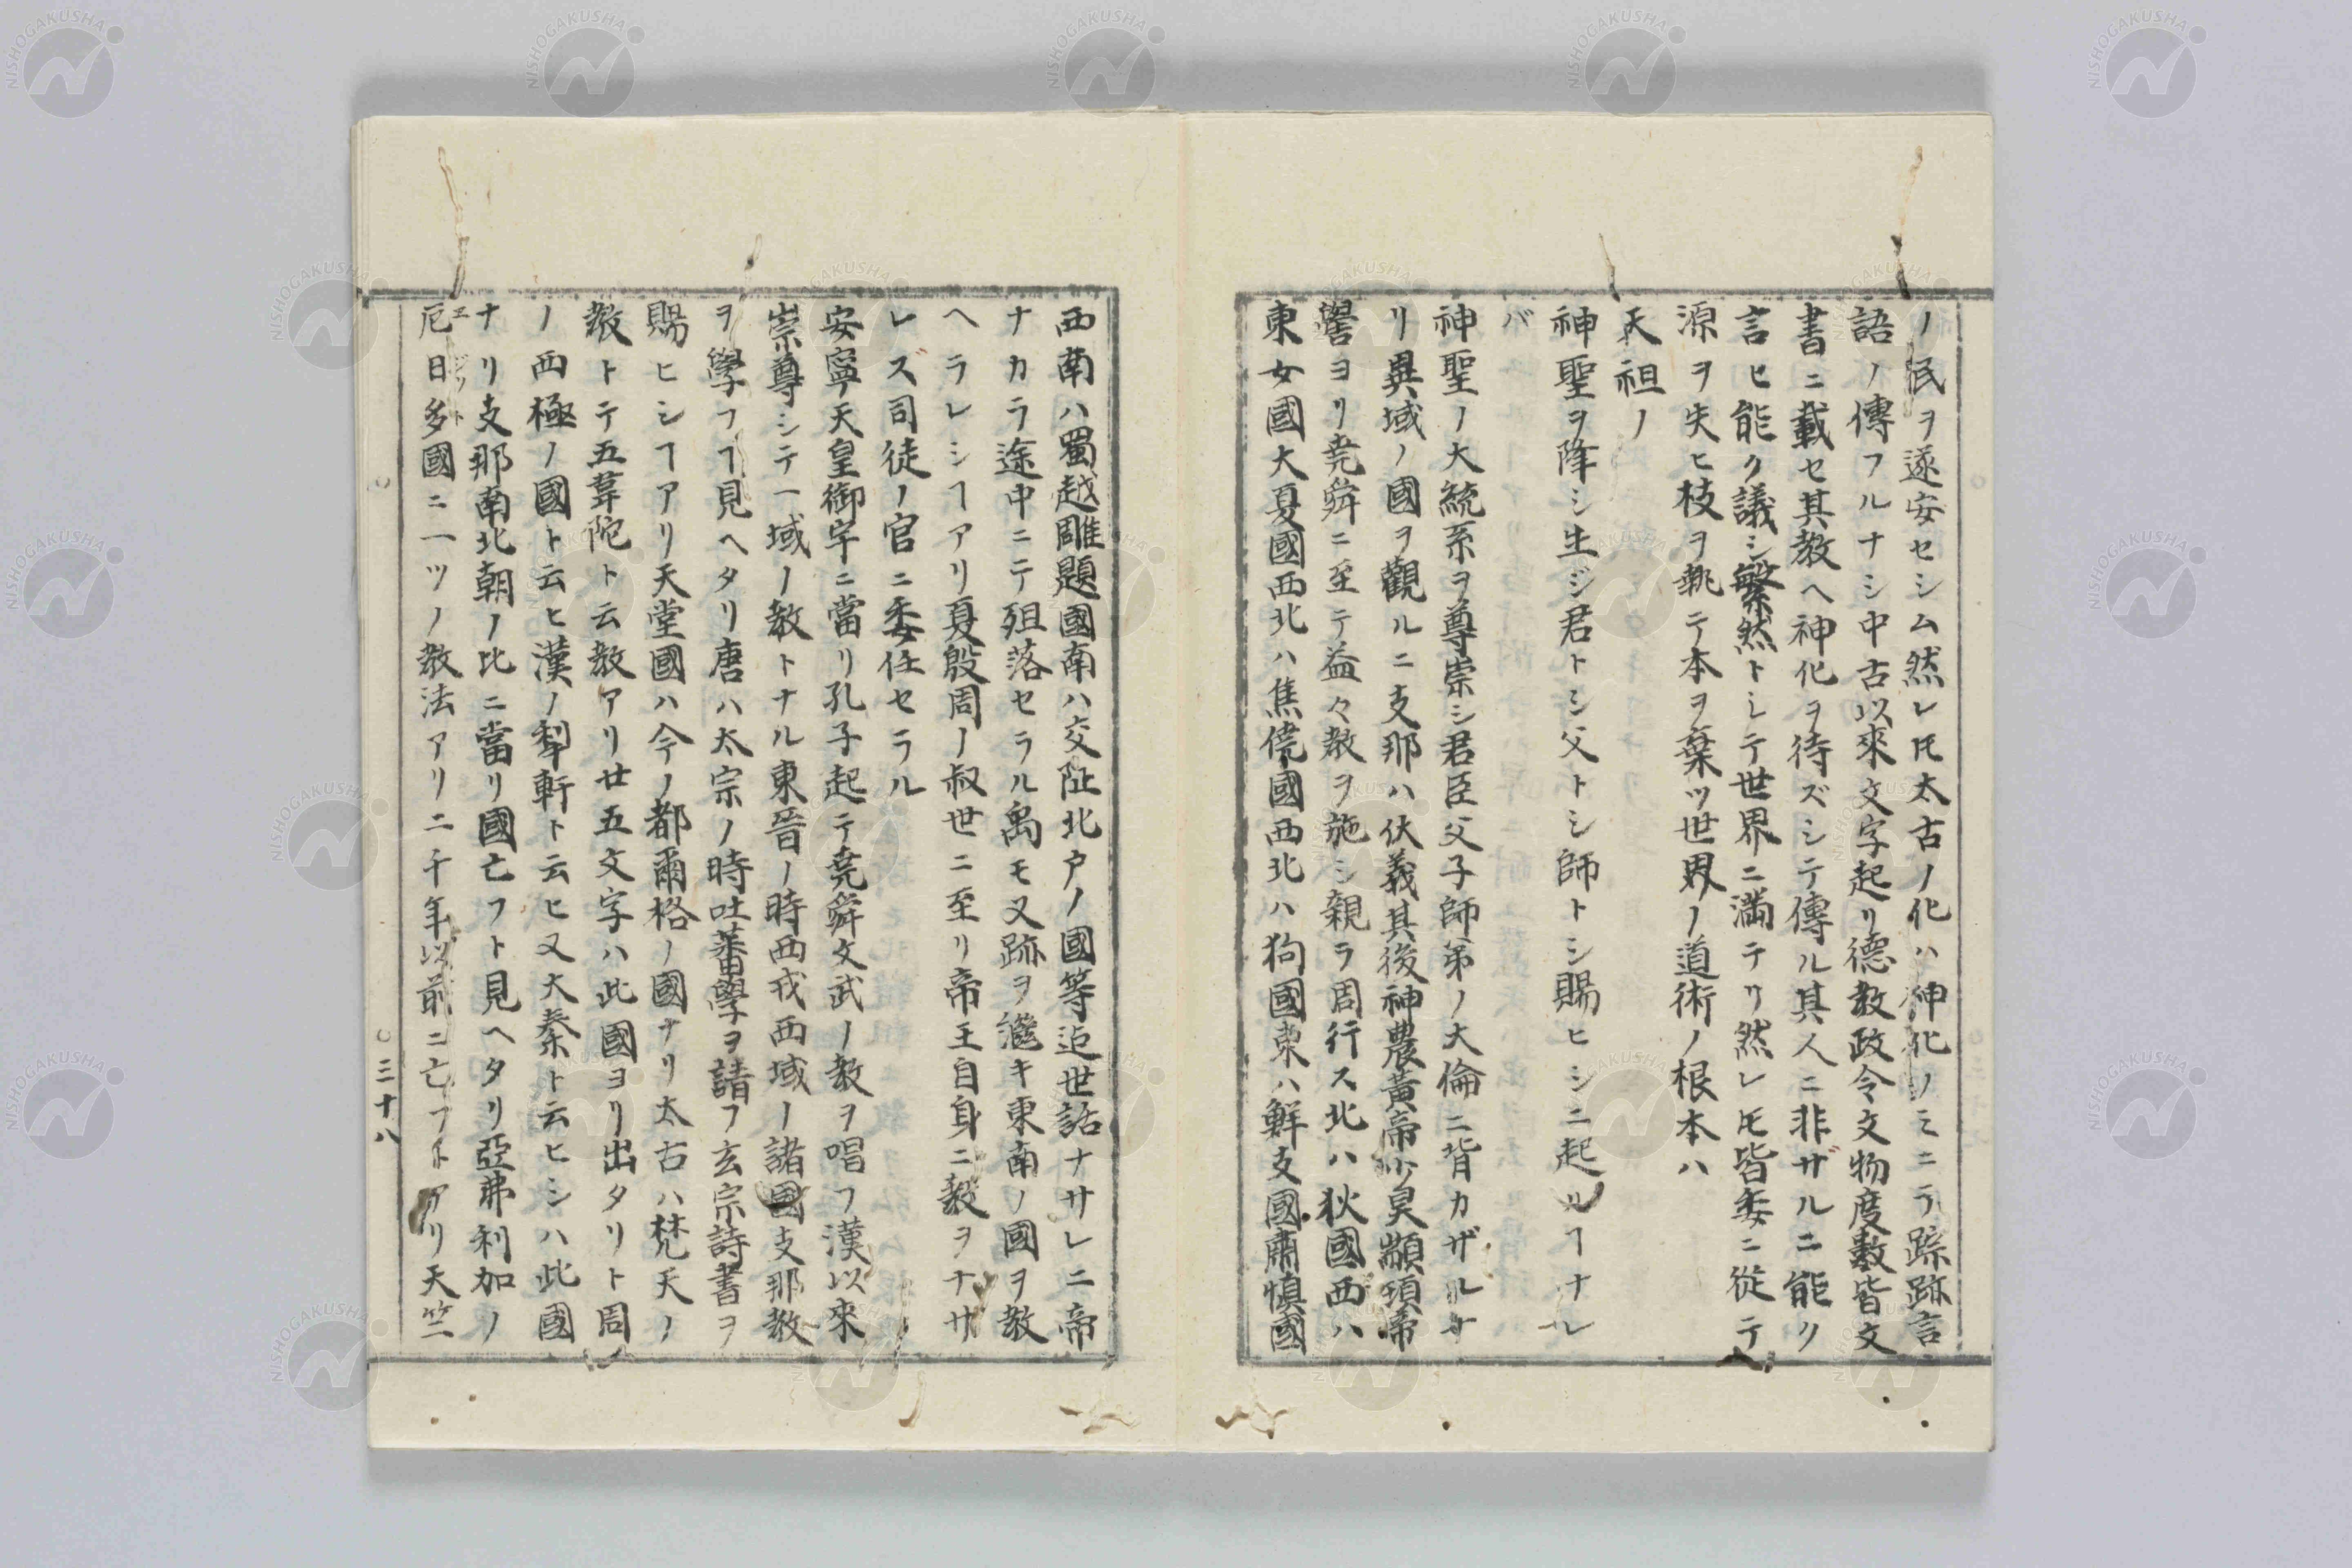 ノ民ヲ遂安セシム然レ𪜈太古ノ化ハ神化ノミニラ踪跡言
語ノ傳フルナシ中古以來文字起リ德敎政令文物度數皆文
書ニ載セ其敎ヘ神化ヲ待ズシテ傳ル其人ニ非ザルニ能ク
言ヒ能ク議シ繁然トシテ世界ニ滿テリ然レ𪜈皆委ニ從テ
源ヲ失ヒ枝ヲ執テ本ヲ棄ツ世界ノ道術ノ根本ハ
天祖ノ
神聖ヲ降シ生ジ君トシ父トシ師トシ賜ヒシニ起ルヿナレ
バ
神聖ノ大統系ヲ尊崇シ君臣父子師弟ノ大倫ニ背カザルナ
リ異域ノ國ヲ觀ルニ支那ハ伏羲其後神農黃帝少昊顓頊帝
嚳ヨリ堯舜ニ至テ益々敎ヲ施シ親ラ周行ス北ハ狄國西ハ
東女國大夏國西北ハ焦僥國西北ハ狗國東ハ鮮支國肅愼國
西南ハ蜀越雕題國南ハ交阯北戸ノ國等迠世話ナサレニ帝
ナカラ途中ニテ殂落セラル禹モ又跡ヲ繼キ東南ノ國ヲ敎
ヘラレシヿアリ夏殷周ノ叔世ニ至リ帝王自身ニ敎ヲナサ
レズ司徒ノ官ニ委任セラル
安寧天皇御宇ニ當リ孔子起テ堯舜文武ノ敎ヲ唱フ漢以來
崇尊シテ一域ノ敎トナル東晉ノ時西戎西域ノ諸國支那敎
ヲ學フヿ見ヘタリ唐ハ太宗ノ時吐蕃學ヲ請フ玄宗詩書ヲ
賜ヒシヿアリ天堂國ハ今ノ都爾格ノ國ナリ太古ハ梵天ノ
敎トテ五韋陀ト云敎アリ廿五文字ハ此國ヨリ出タリト周
ノ西極ノ國ト云ヒ漢ノ犁軒ト云ヒ又大秦ト云ヒシハ此國
ナリ支那南北朝ノ比ニ當リ國亡フト見ヘタリ亞弗利加ノ
厄日多國ニ一ツノ敎法アリ二千年以前ニ亡フトアリ天竺
エジット
三十八
NISHOGAKUSHA